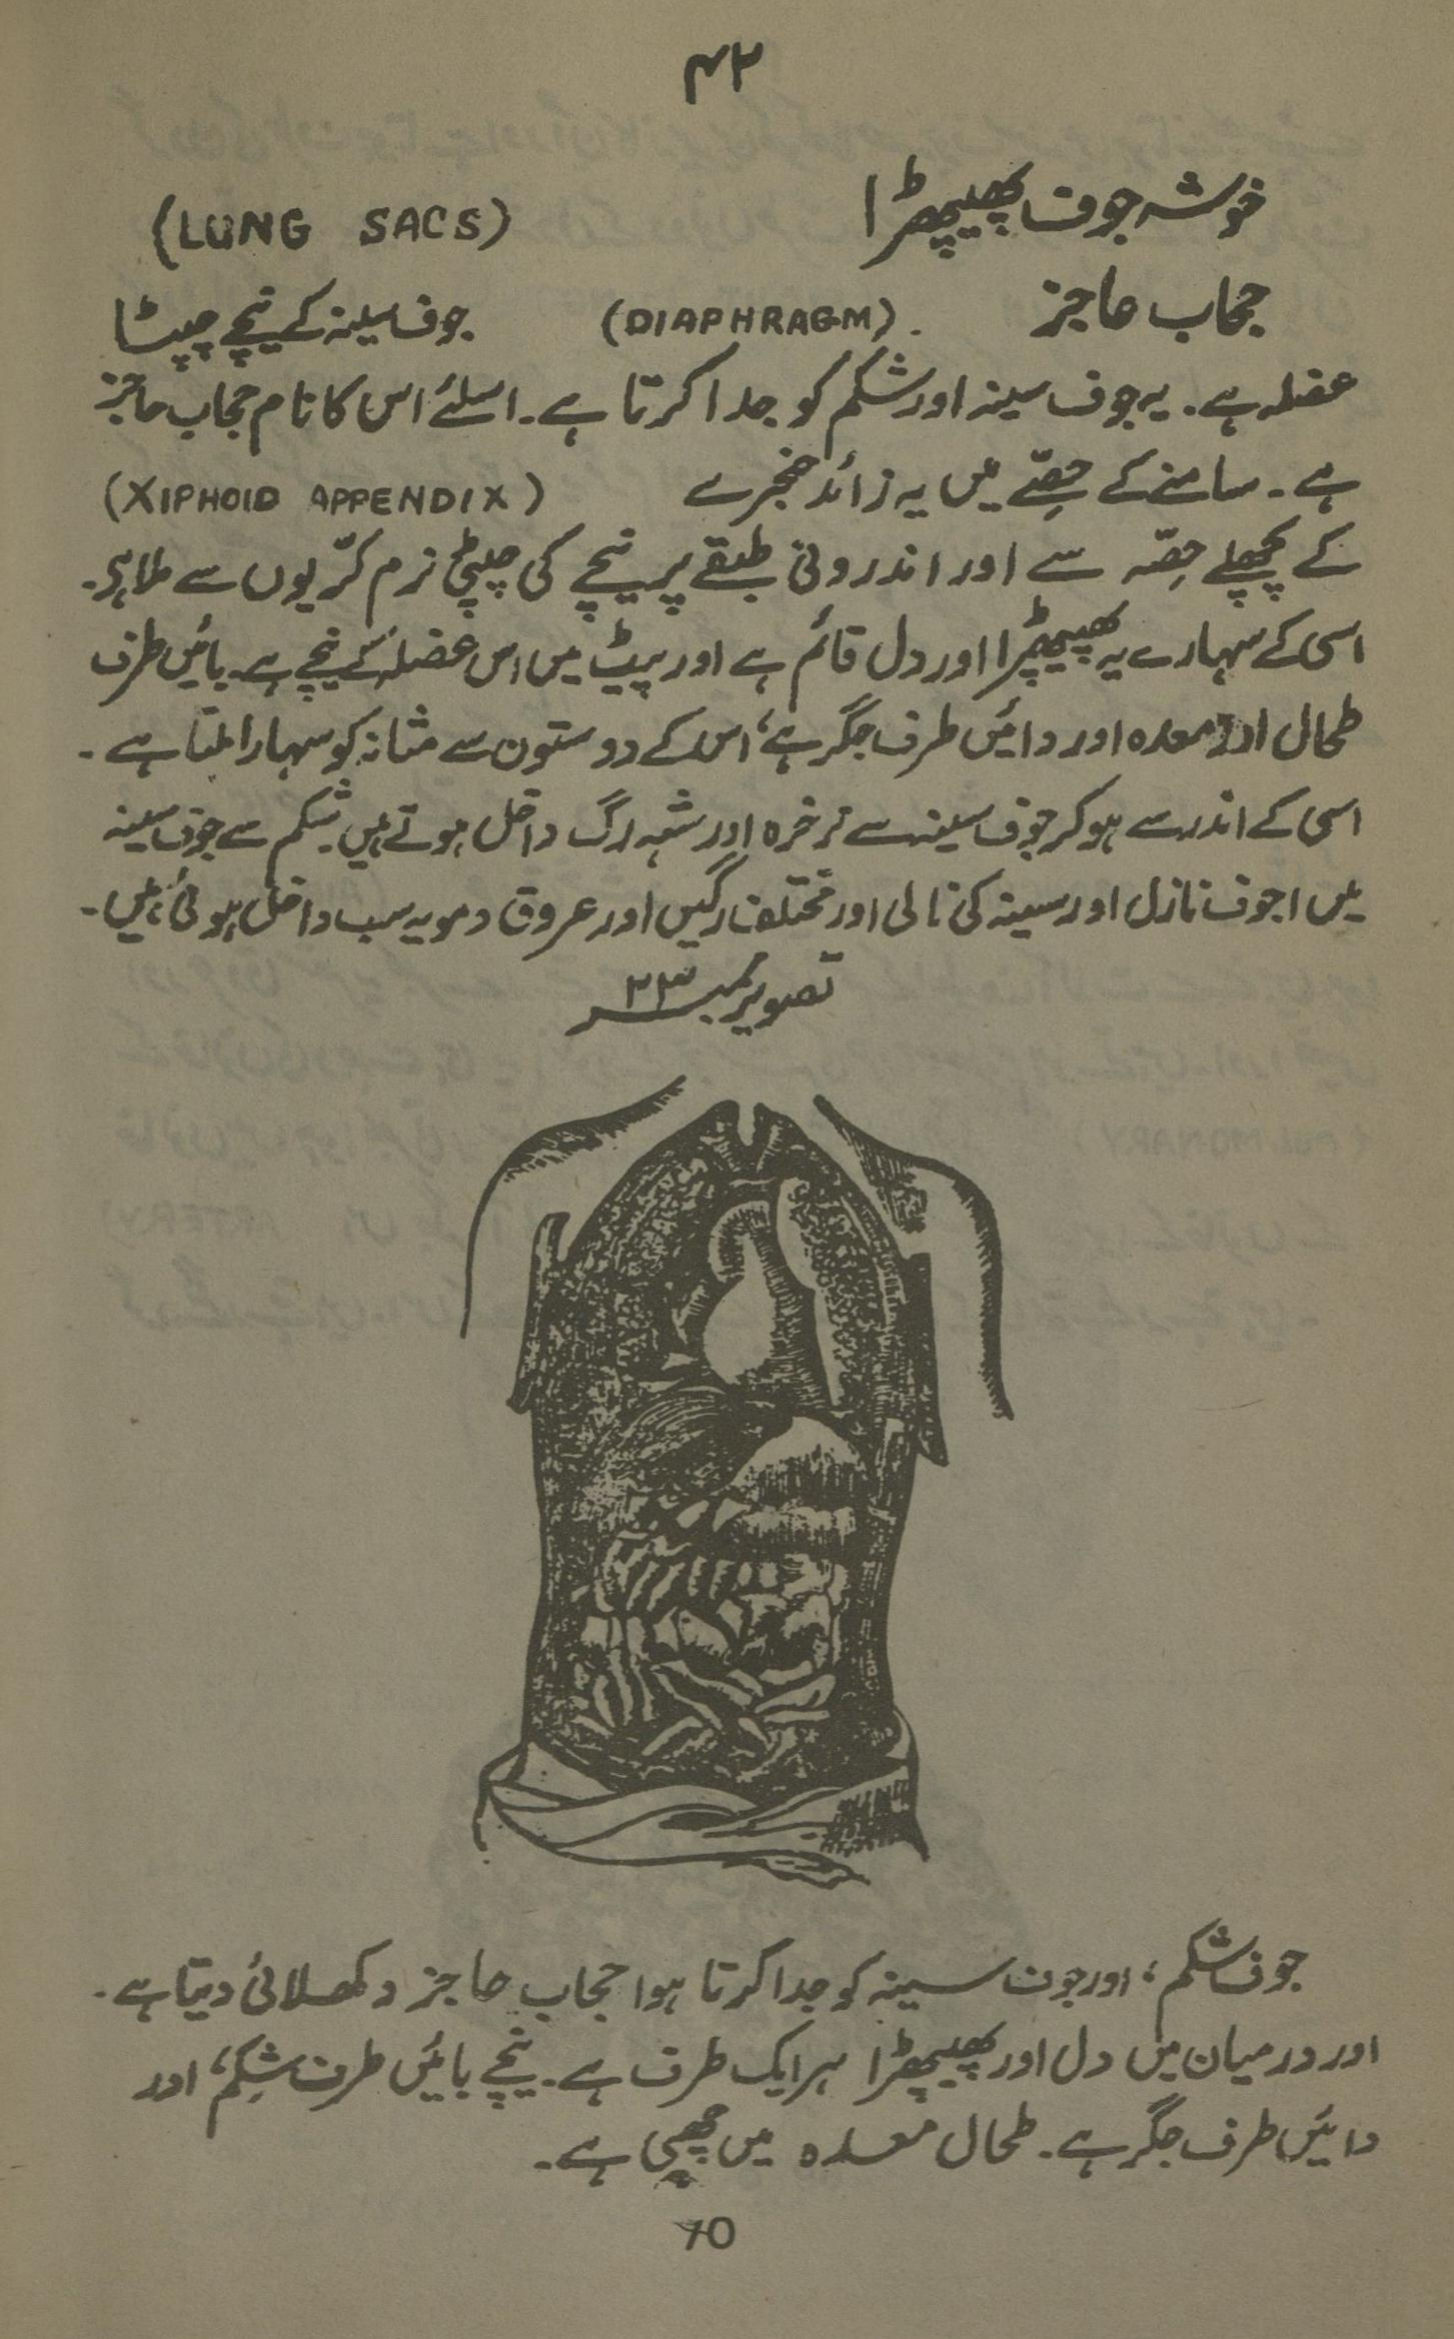 ۴۲
خوشہ جوف پھیپھڑا (LUNG SACS)
حجاب حاجز (DIAPHRAGM). جوف سینہ کے نیچے چپٹا
عضلہ ہے۔ یہ جوف سینہ اور شکم کو جدا کرتا ہے۔ اسلئے اس کا نام حجاب حاجز
ہے۔ سامنے کے حِصّے میں یہ زائد خنجرے (XIPHOID APPENDIX)
کے پچھلے حِصّہ سے اور اندرونی طبقے پر نیچے کی چپٹی نرم کرّیوں سے ملا ہے۔
اسی کے سہارے یہ پھیپھڑا اور دل قائم ہے اور پیٹ میں اس عضلہ کے نیچے ہے۔ بائیں طرف
طحال اور معدہ اور دائیں طرف جگر ہے، اس کے دو ستون سے مثانہ کو سہارا ملتا ہے۔
اسی کے اندر سے ہو کر جوف سینہ سے نرخرہ اور شہہ رگ داخل ہوتے ہیں۔ شکم سے جوف سینہ
میں اجوف نازل اور سینہ کی نالی اور مختلف رگیں اور عروق دمویہ سب داخل ہوئی ہیں۔
تصویر نمبر ۲۳
جوف شکم، اور جوف سینہ کو جدا کرتا ہوا حجاب حاجز دکھلائی دیتا ہے۔
اور درمیان میں دل اور پھیپھڑا ہر ایک طرف ہے۔ نیچے بائیں طرف شِکم، اور
دائیں طرف جگر ہے۔ طحال معدہ میں چھپی ہے۔
70